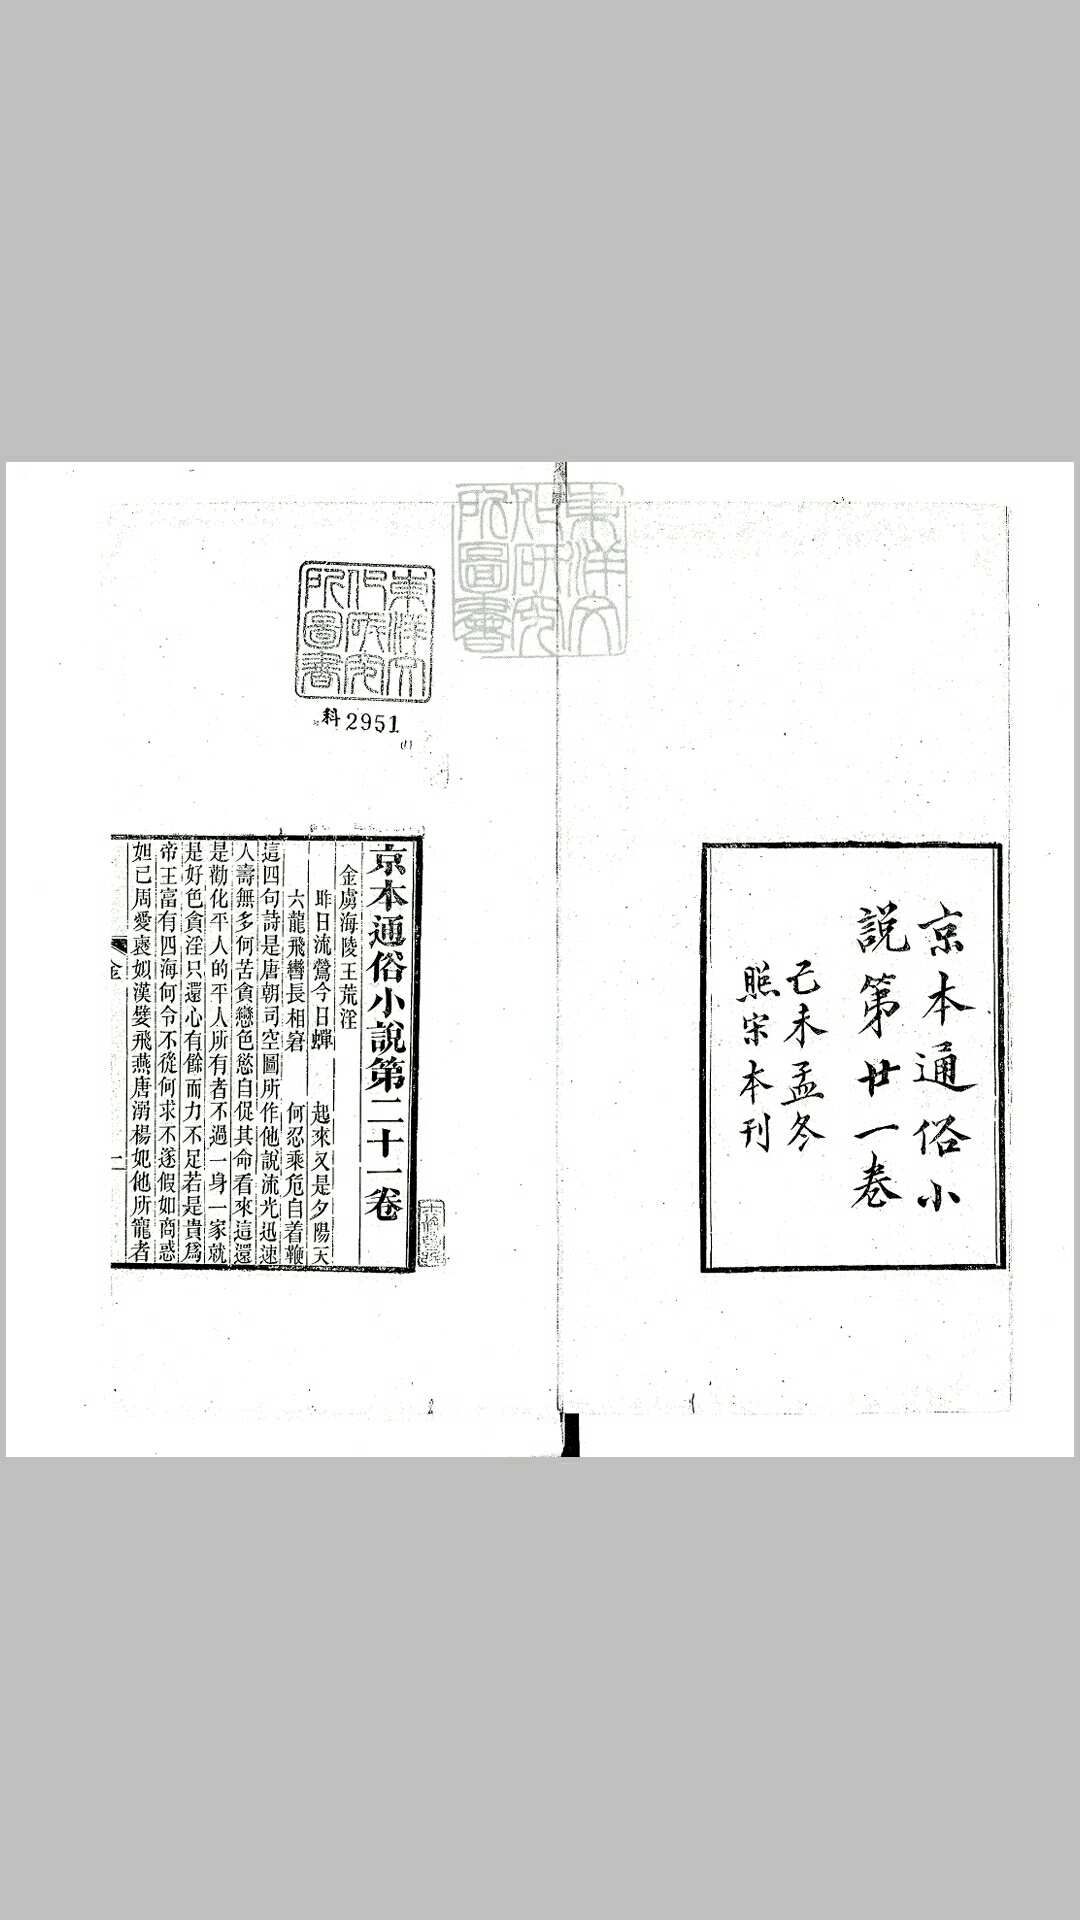 京本通俗小
說第廿一卷
己未孟冬
照宋本刊
東洋文
化研究
院圖書
東洋文
化研究
院圖書
科2951
(1)
京本通俗小說第二十一卷
金虜海陵王荒淫
昨日流鶯今日蟬 起來又是夕陽天
六龍飛轡長相窘 何忍乘危自着鞭
這四句詩是唐朝司空圖所作他說流光迅速
人壽無多何苦貪戀色慾自促其命看來這還
是勸化平人的平人所有者不過一身一家就
是好色貪淫只還心有餘而力不足若是貴爲
帝王富有四海何令不從何求不遂假如商惑
妲己周愛褒姒漢嬖飛燕唐溺楊妃他所寵者